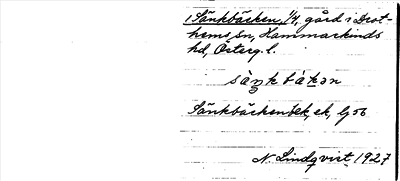 1 Sänkbäcken, 1/4, gård i Drot-
hems sn, Hammarkinds
hd, Österg. l.
sàŋkbákən
Sänkbäcken, ek,
N. Lindqvist 1927